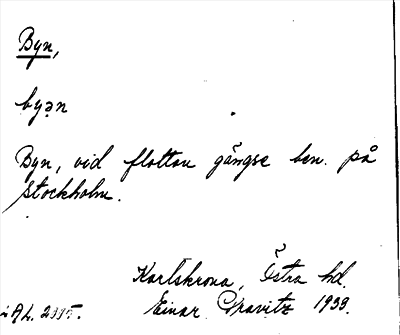 Byn,
byən
Byn, vid flottan gängse ben. på
Stockholm.
Karlskrona, Östra hd.
Einar 1939.